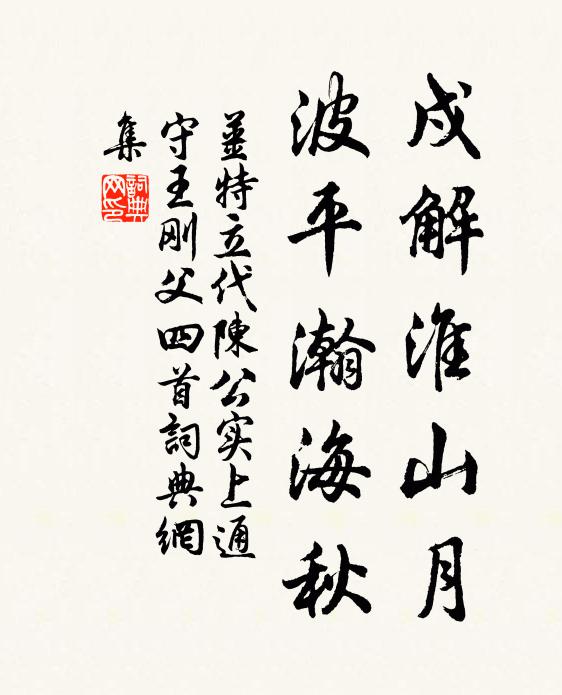 戍解淮山月
波平瀚海秋
姜特立代陳公实上通
守王刚父四首詞典網
集
詞典
网印